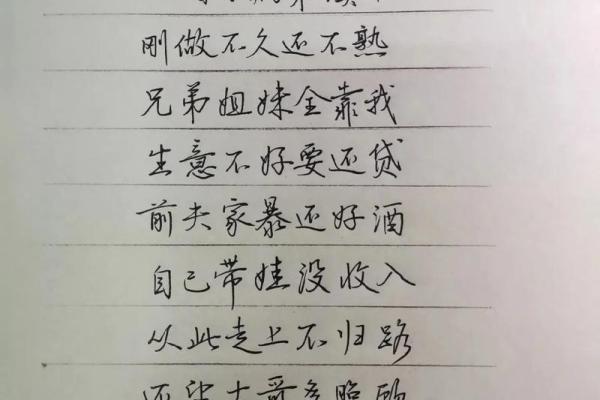 刚做不久还不熟
兄弟姐妹全靠我
生意不好要还贷
前夫家暴还好酒
自己带娃没收入
从此走上不归路
还望大哥多照顾